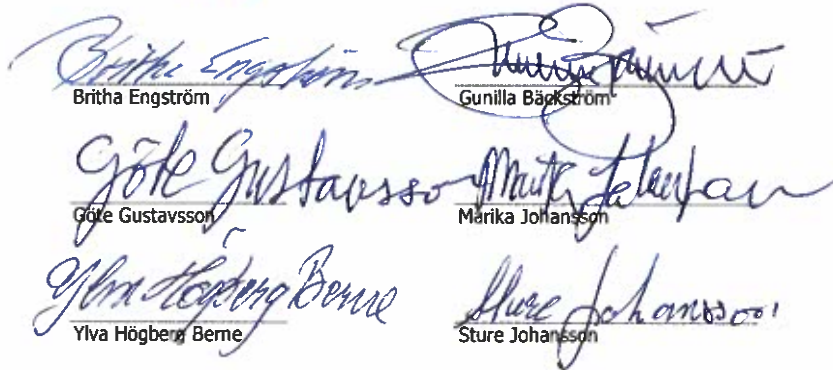 Britha Engström
Britha Engström
Gunilla Bäckström
Göte Gustavsson
Göte Gustavsson
Marika Johansson
Marika Johansson
Ylva Högberg Berne
Ylva Högberg Berne
Sture Johansson
Sture Johansson